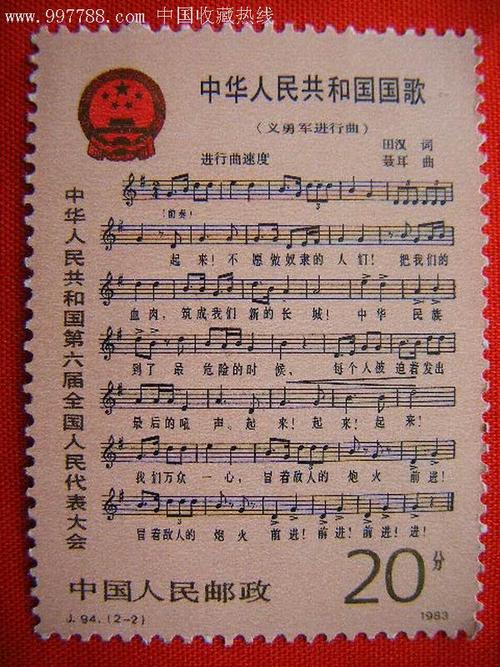 www.997788.com 中国收藏热线
中华人民共和国国歌
（义勇军进行曲）
田汉 词
进行曲速度 聂耳 曲
（前奏）
起 来！不 愿 做 奴 隶 的 人 们！ 把 我们 的
血 肉， 筑 成 我 们 新 的 长 城！ 中 华 民 族
到 了 最 危 险 的 时 候， 每 个 人 被 迫 着 发 出
最 后 的 吼 声。 起 来！ 起 来！ 起 来！
我们 万 众 一 心， 冒 着 敌 人 的 炮 火 前 进！
冒 着 敌 人 的 炮 火 前 进！ 前 进！ 前 进！ 进！
中华人民共和国第六届全国人民代表大会
中国人民邮政 20分
J. 94. (2-2) 1983